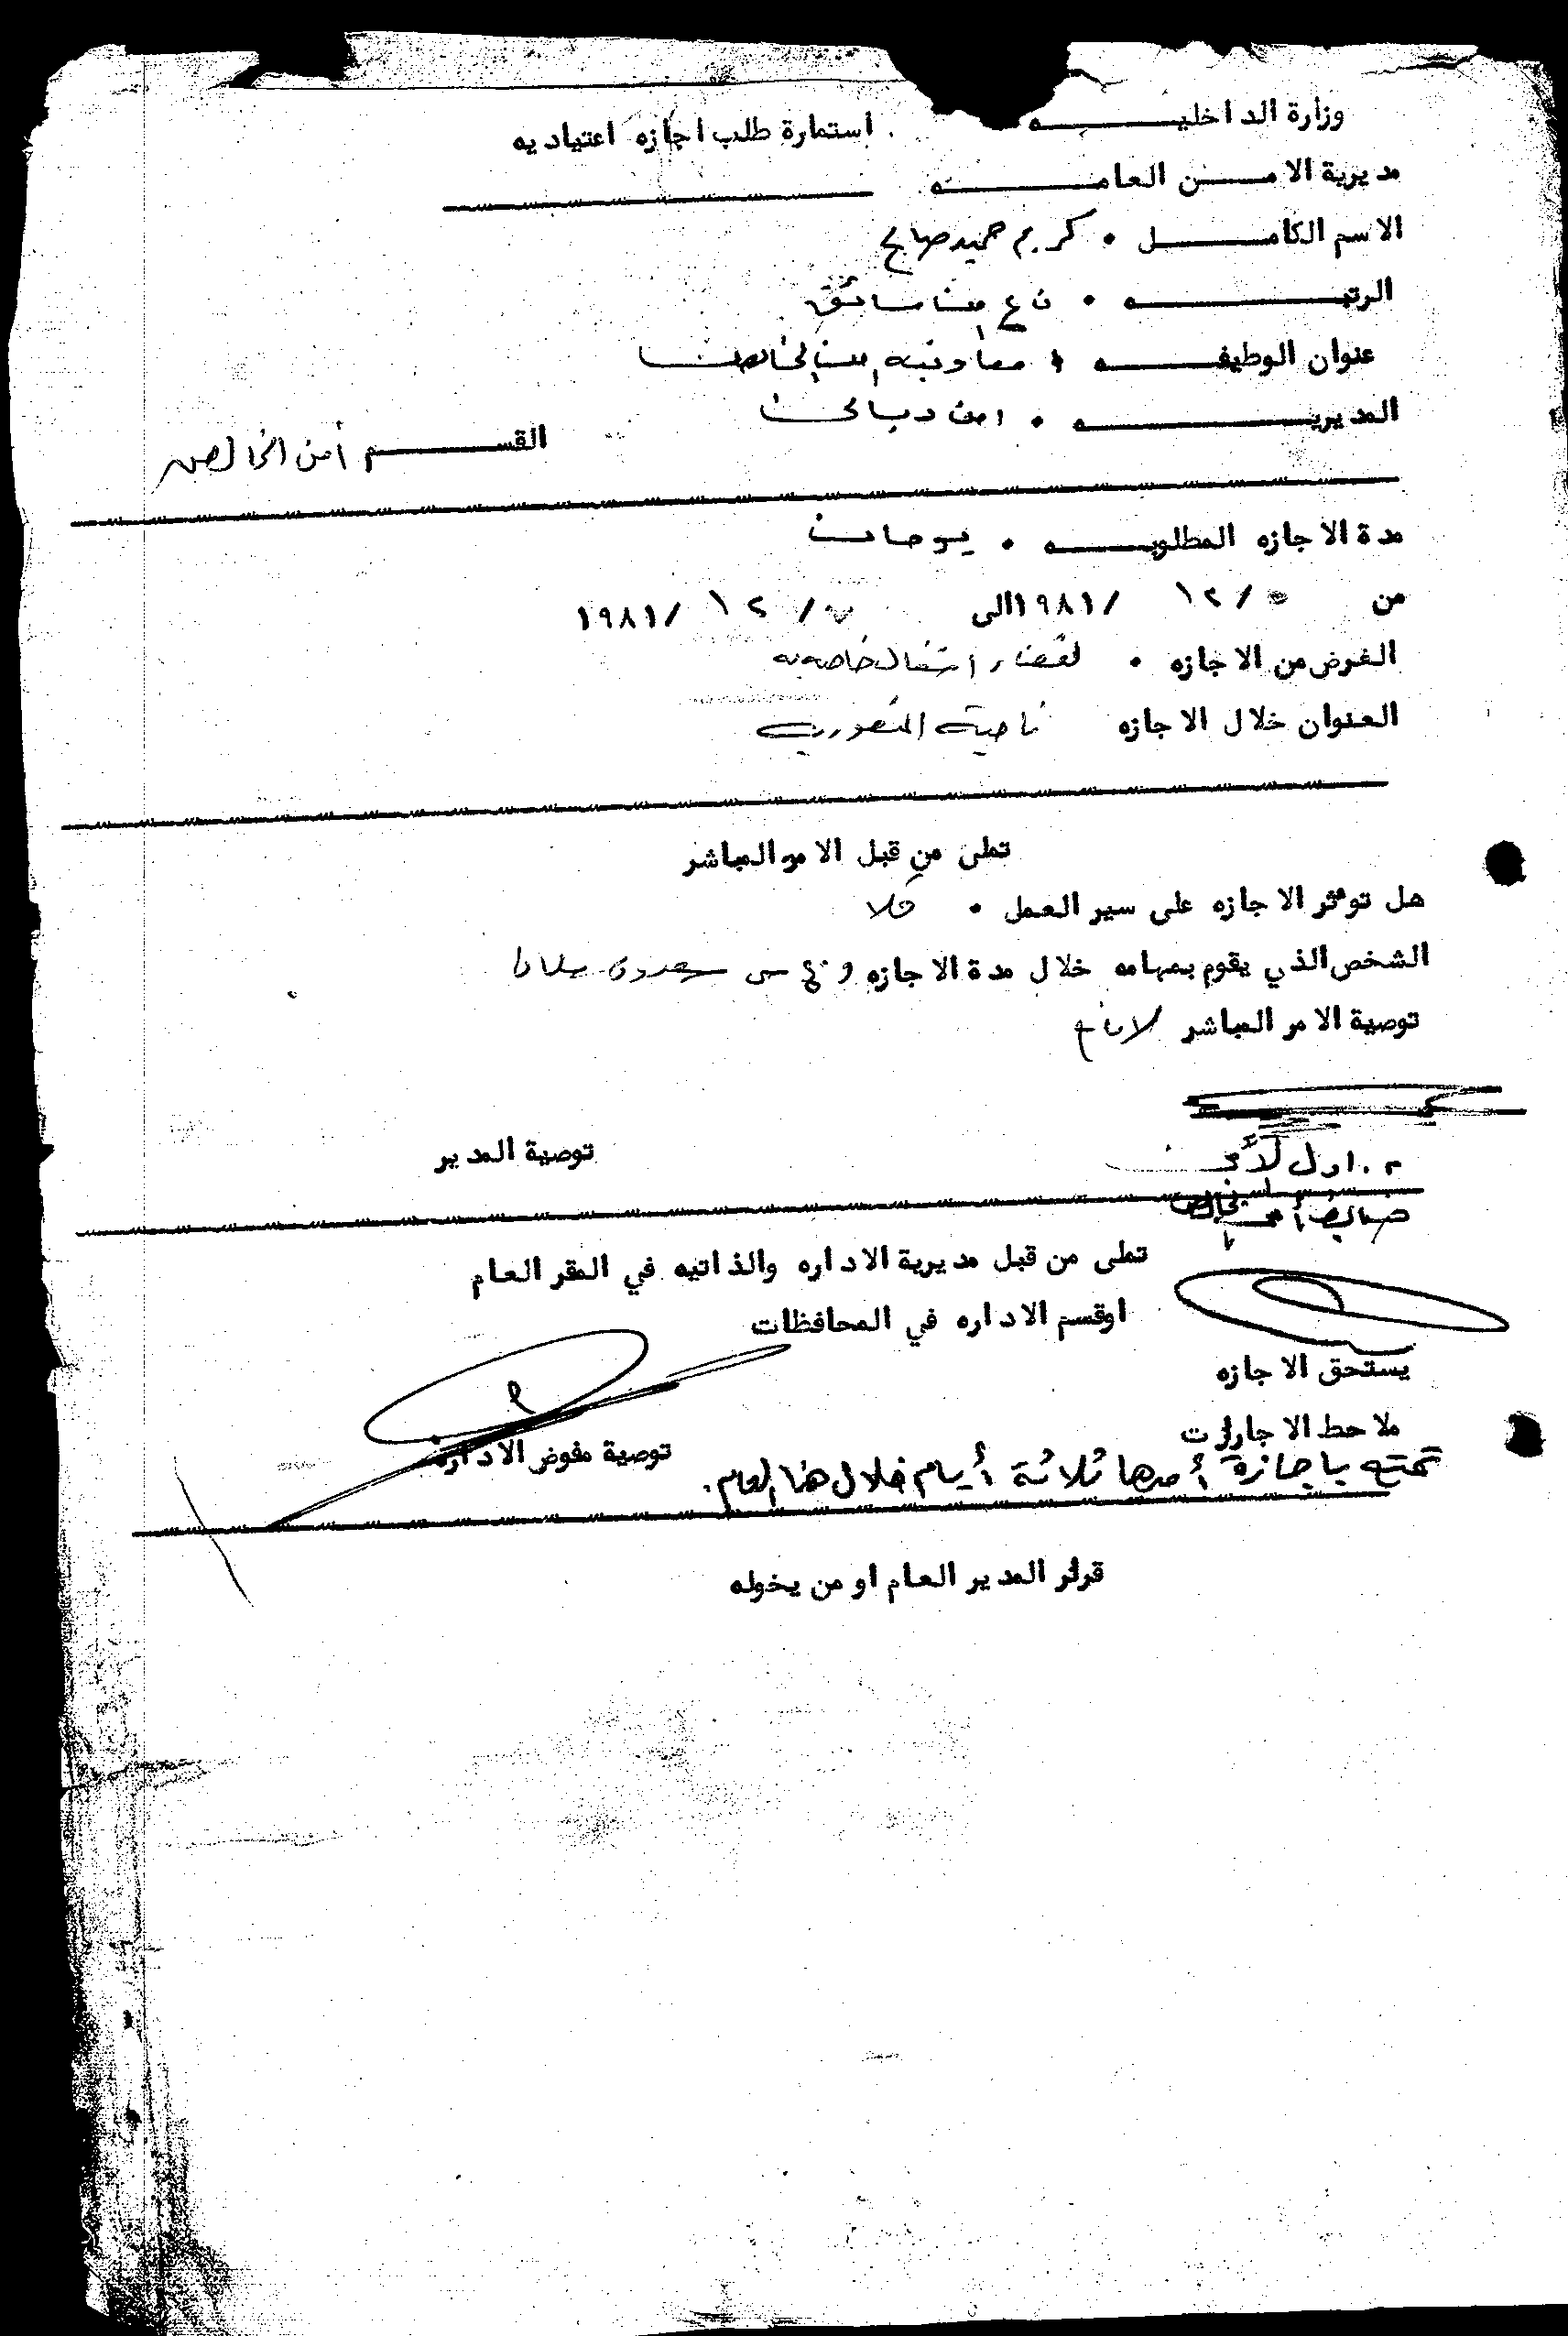 وزارة الداخليـــــــه
استمارة طلب اجازه اعتياديه
مديرية الامـــن العامـــــــه
الاسم الكامــــــل • كريم حميد صالح
الرتبـــــــــــه • ن ع سائق
عنوان الوظيفـــــــه • معاونية امن الخالص
المديريـــــــــــه • امن ديالى
القســــــم أمن الخالص
مدة الاجازه المطلوبــــــه • يومان
من ٥ / ١٢ / ١٩٨١ الى ٧ / ١٢ / ١٩٨١
الغرض من الاجازه • لقضاء اشغال خاصه به
العنوان خلال الاجازه ناحية المنصورية
تملى من قبل الامر المباشر
هل توءثر الاجازه على سير العمل • كلا
الشخص الذي يقوم بمهامه خلال مدة الاجازه سعدون
توصية الامر المباشر لا مانع
م . اول
ضابط أمن الخالص
توصية المدير
تملى من قبل مديرية الاداره والذاتيه في المقر العام
اوقسم الاداره في المحافظات
يستحق الاجازه
ملاحظ الاجازات
توصية مفوض الاداره
تمتع باجازة أمدها ثلاثة أيام خلال هذا العام .
قرار المدير العام او من يخوله